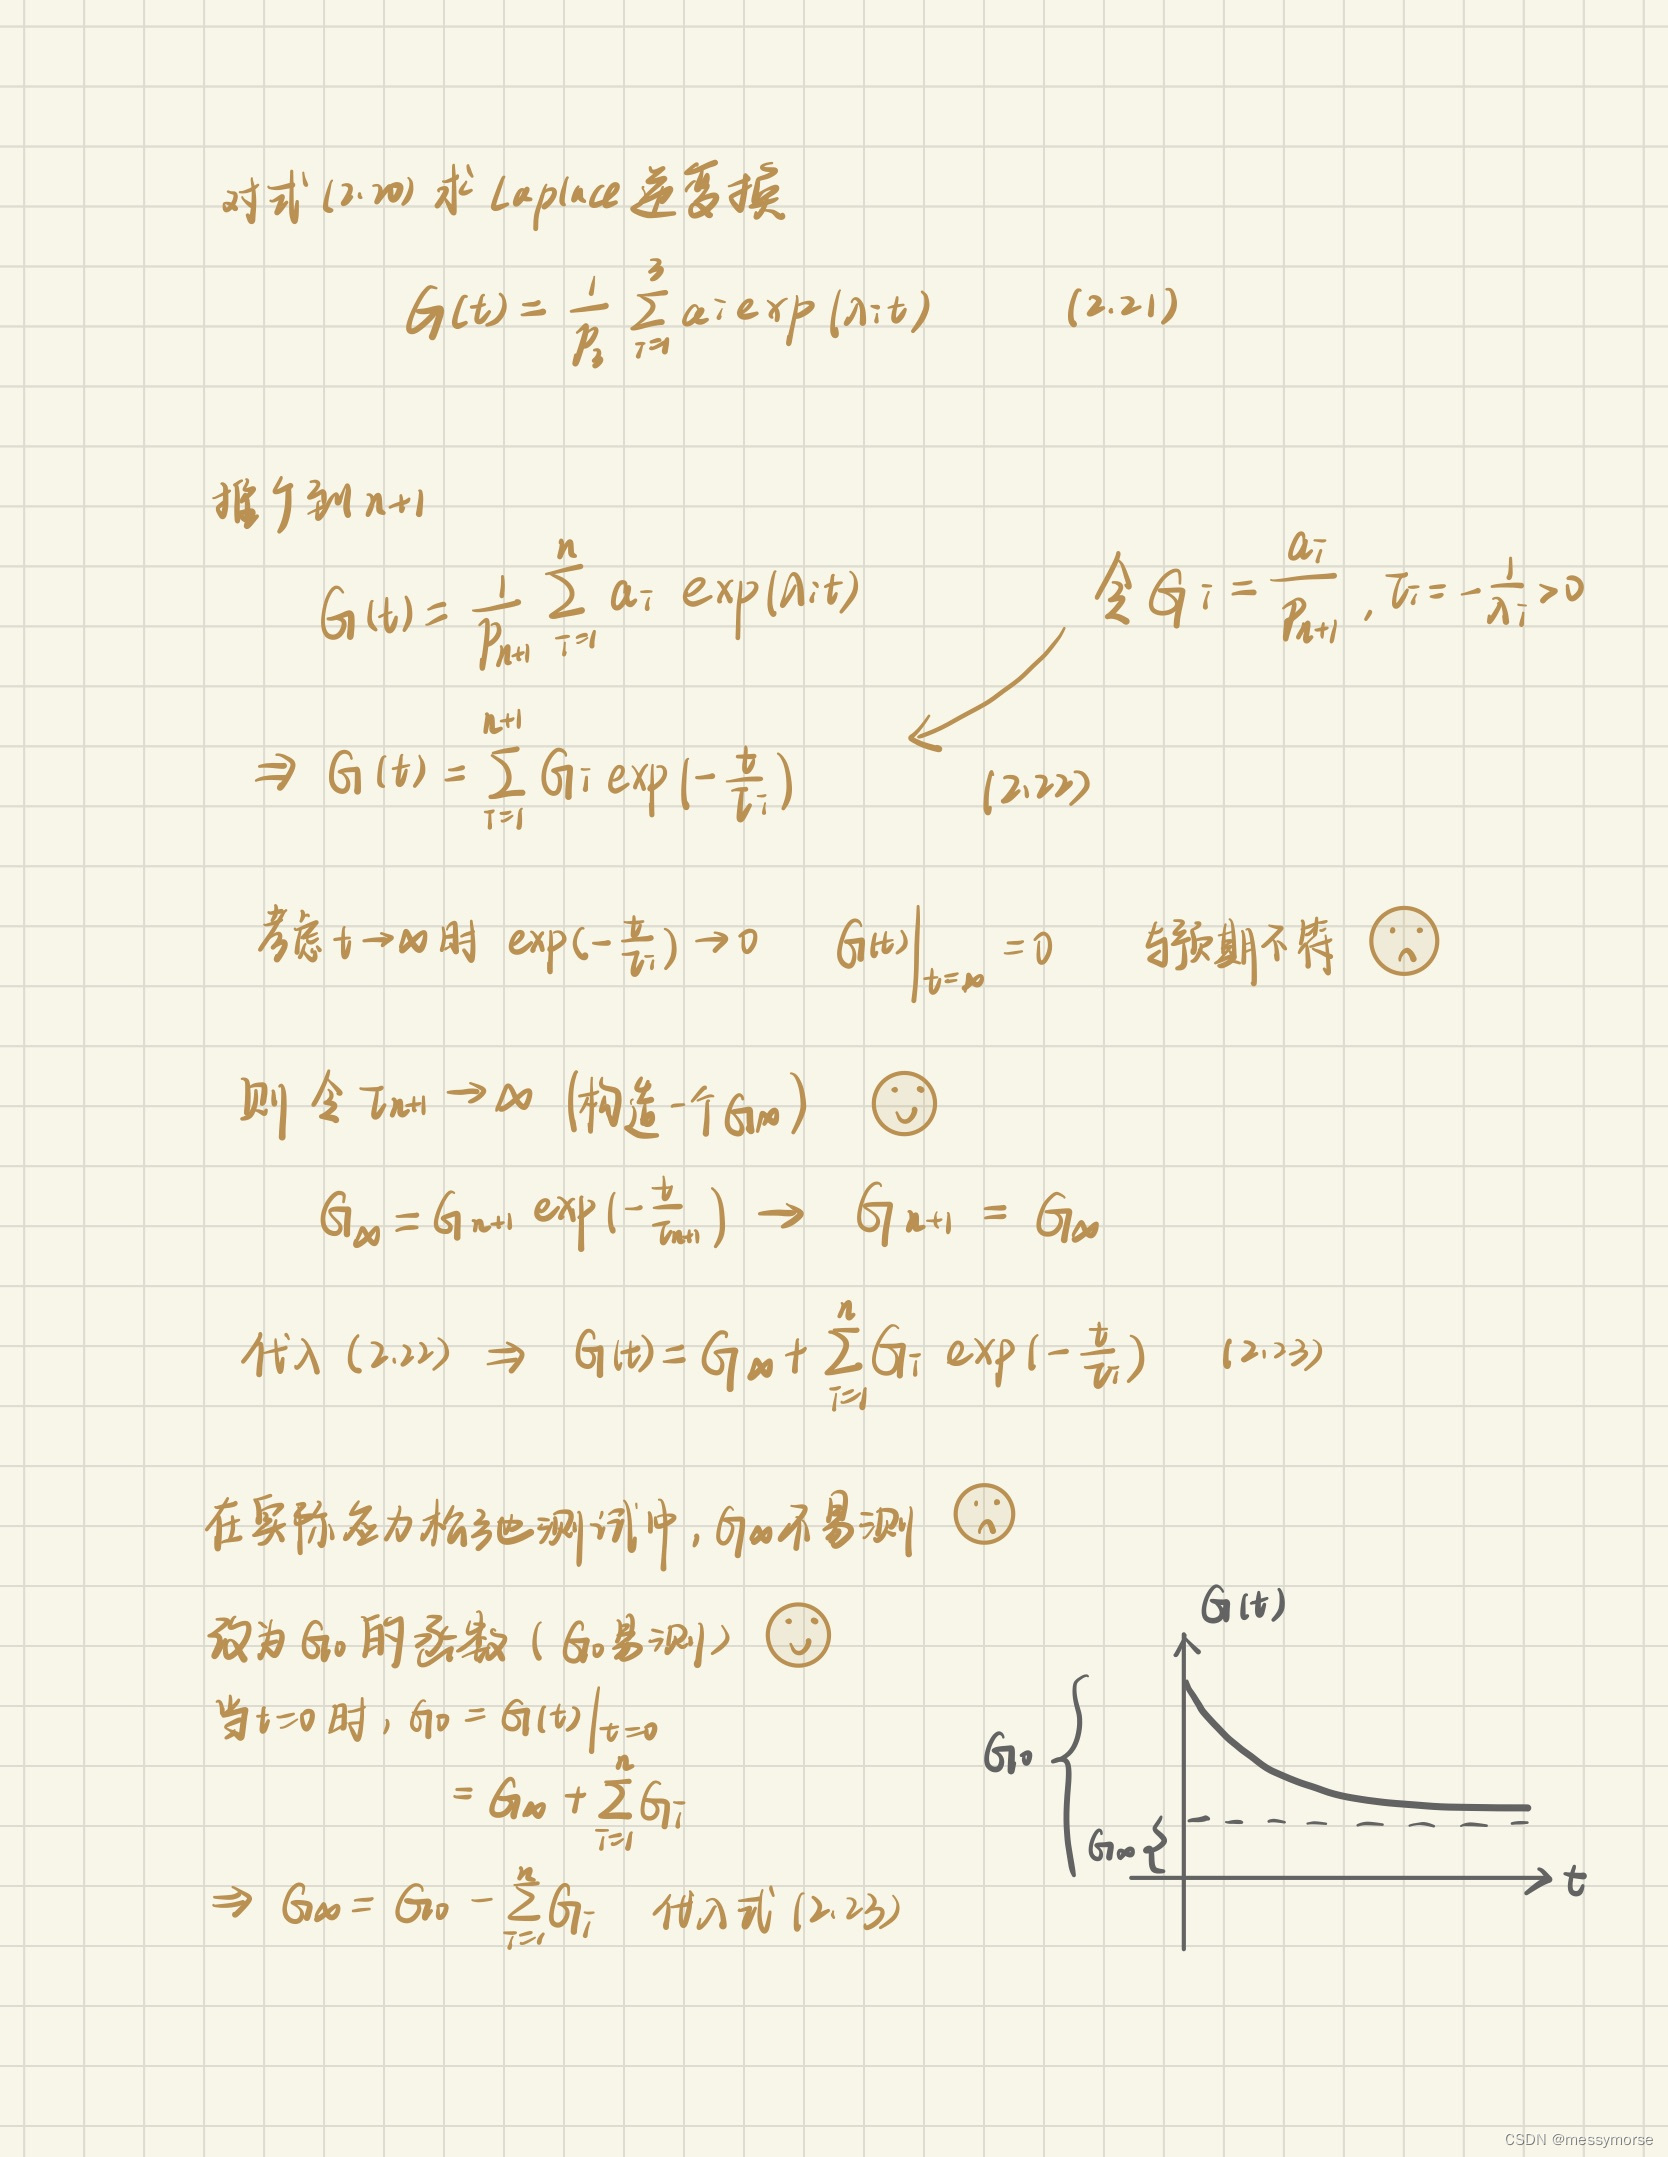 对式(2.20)求Laplace逆变换
G(t) = 1/P₃ ∑_{i=1}^{3} aᵢ exp(λᵢt) (2.21)
推广到n+1
G(t) = 1/P_{n+1} ∑_{i=1}^{n} aᵢ exp(λᵢt) 令 Gᵢ = aᵢ/P_{n+1}, τᵢ = -1/λᵢ > 0
⇒ G(t) = ∑_{i=1}^{n+1} Gᵢ exp(-t/τᵢ) (2.22)
考虑 t→∞时 exp(-t/τᵢ)→0 G(t)|_{t=∞} = 0 与预期不符
则 令 τ_{n+1}→∞ (构造一个G∞)
G∞ = G_{n+1} exp(-t/τ_{n+1}) → G_{n+1} = G∞
代入 (2.22) ⇒ G(t) = G∞ + ∑_{i=1}^{n} Gᵢ exp(-t/τᵢ) (2.23)
在实际应力松弛测试中, G∞不易测
改为G₀的函数 (G₀易测)
当t=0时, G₀ = G(t)|_{t=0}
= G∞ + ∑_{i=1}^{n} Gᵢ
⇒ G∞ = G₀ - ∑_{i=1}^{n} Gᵢ 代入式(2.23)
G(t)
G₀
G∞
t
CSDN @messymorse